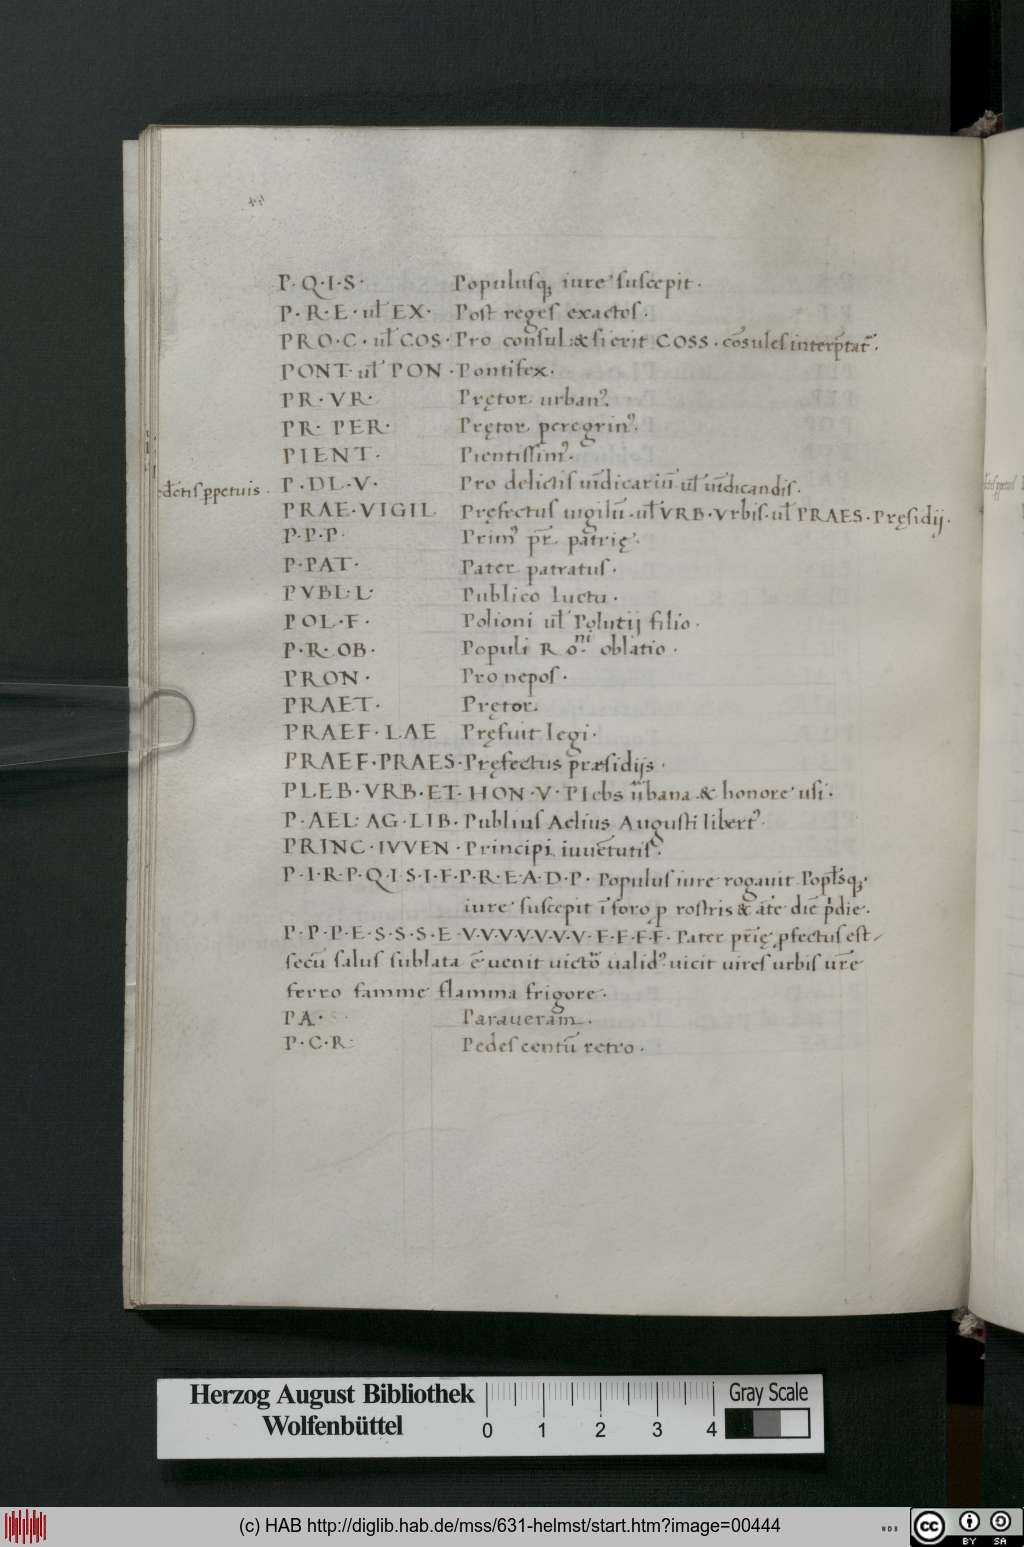 P·Q·I·S· Populusq; iure suscepit·
P·R·E· ul̄ EX· Post reges exactos·
PRO·C· ul̄ COS· Pro consul: & si erit COSS· cōsules interp̄tat᷑·
PONT· ul̄ PON· Pontifex·
PR·VR· Prętor urbanꝰ·
PR· PER· Prętor peregrinꝰ·
PIENT· Pientissimꝰ·
P·DL·V· Pro delictis uīdicariū ul̄ uīdicandis·
ꝑpetuis·
PRAE·VIGIL Pręfectus uigilū· ul̄ VRB·Vrbis· ul̄ PRAES·Pręsidij·
P·P·P· Primꝰ pr̄ patrię·
P·PAT· Pater patratus·
PVBL·L· Publico luctu·
POL·F· Polioni ul̄ Polutij filio·
P·R·OB· Populi Ro·ni oblatio·
PRON· Pro nepos·
PRAET· Prętor·
PRAEF·LAE Pręfuit legi·
PRAEF·PRAES·Pręfectus præsidijs·
PLEB·VRB·ET·HON·V· Plebs ūbana & honore usi·
P·AEL·AG·LIB· Publius Aelius Augusti libertꝰ·
PRINC·IVVEN· Principi iuuētutis·
P·I·R·P·Q·I·S·I·F·P·R·E·A·D·P· Populus iure rogauit Popl̄sq;·
iure suscepit ī foro p rostris & āte diē p̄die·
P·P·P·E·S·S·S·E·V·V·V·V·V·V·V·F·F·F·F· Pater pr̄ię ꝓfectus est
secū salus sublata ē uenit uictō ualidꝰ uicit uires urbis ur̄e
ferro famme flamma frigore·
PA· Paraueram·
P·C·R· Pedes centū retro·
Herzog August Bibliothek
Wolfenbüttel
0 1 2 3 4
Gray Scale
(c) HAB http://diglib.hab.de/mss/631-helmst/start.htm?image=00444
WDB
cc BY SA